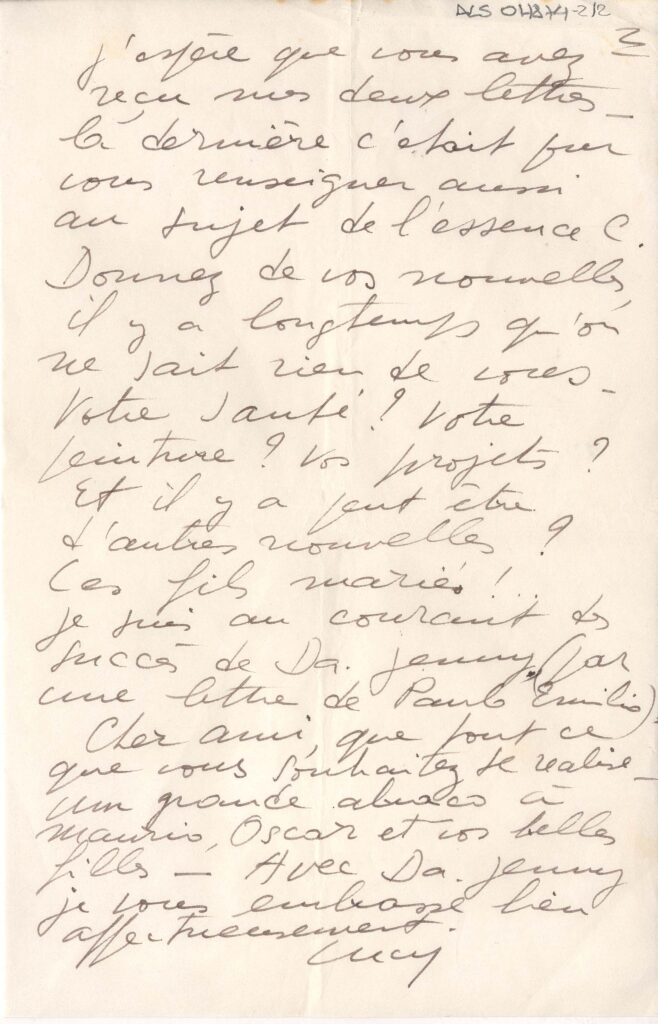 ALS 04874-2/2
3
j'espère que vous avez
reçu mes deux lettres _
la dernière c'était pour
vous renseigner aussi
au sujet de l'essence C.
Donnez de vos nouvelles,
il y a longtemps qu'on
ne sait rien de vous _
Votre santé ? Votre
peinture ? Vos projets ?
Et il y a peut être
d'autres nouvelles ?
Les fils mariés !..
je suis au courant des
succès de Da. Jenny (par
une lettre de Paulo Emilio).
Cher ami, que tout ce
que vous souhaitez se réalise _
um grande abraço à
Mauricio, Oscar et vos belles
filles — Avec Da. Jenny
je vous embrasse bien
affectueusement.
Lucy